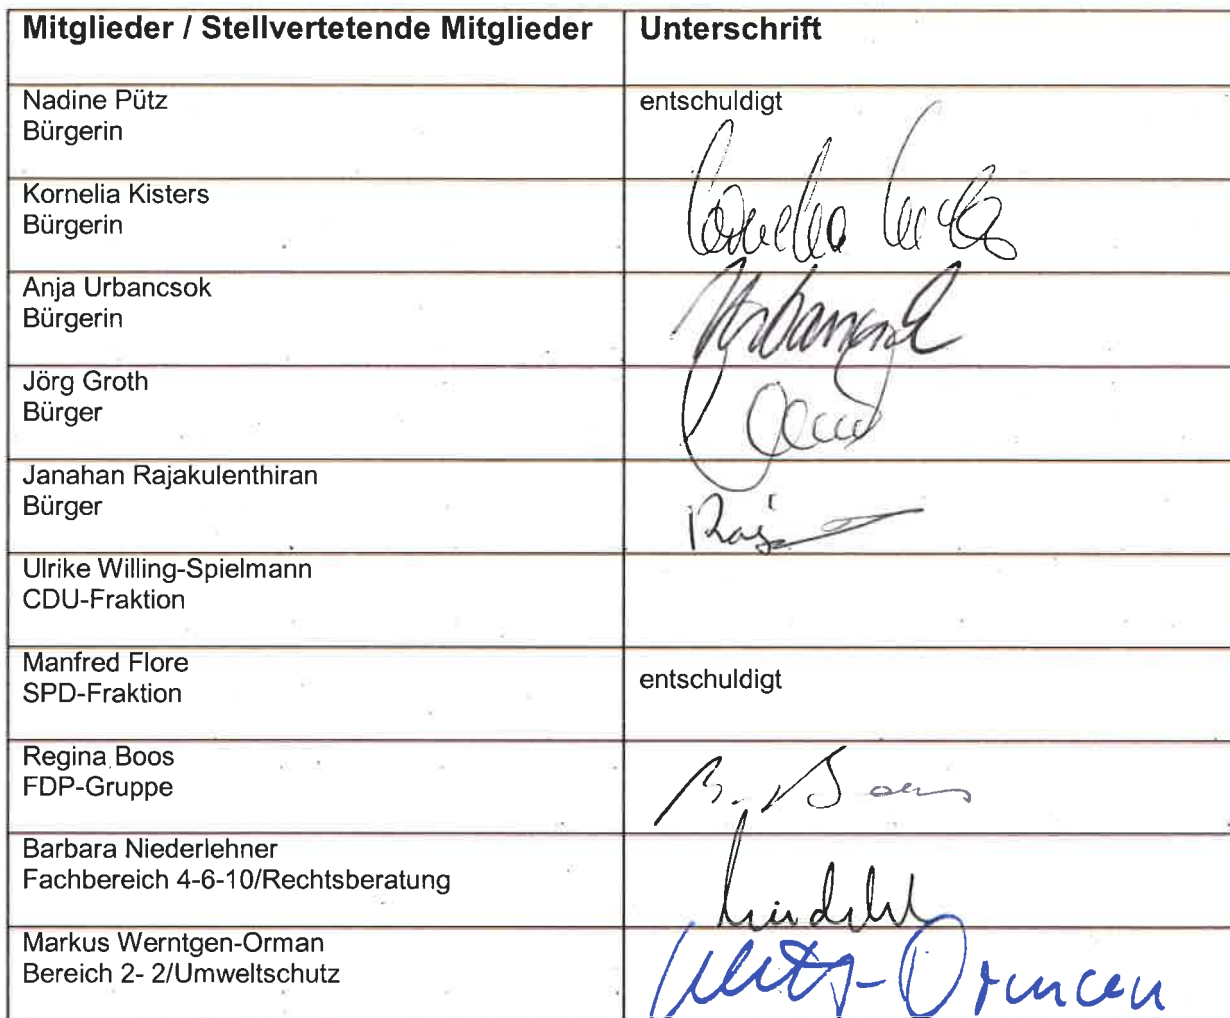 Mitglieder / Stellvertetende Mitglieder Unterschrift
Nadine Pütz entschuldigt
Bürgerin
Kornelia Kisters
Bürgerin
Anja Urbancsok
Bürgerin
Jörg Groth
Bürger
Janahan Rajakulenthiran
Bürger
Ulrike Willing-Spielmann
CDU-Fraktion
Manfred Flore
SPD-Fraktion entschuldigt
Regina Boos
FDP-Gruppe
Barbara Niederlehner
Fachbereich 4-6-10/Rechtsberatung
Markus Werntgen-Orman
Bereich 2- 2/Umweltschutz